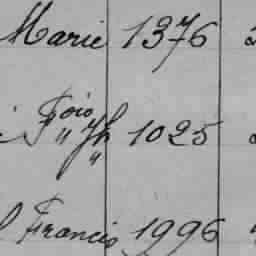 Marie 1376
Fois Jh 1025
Francis 1996